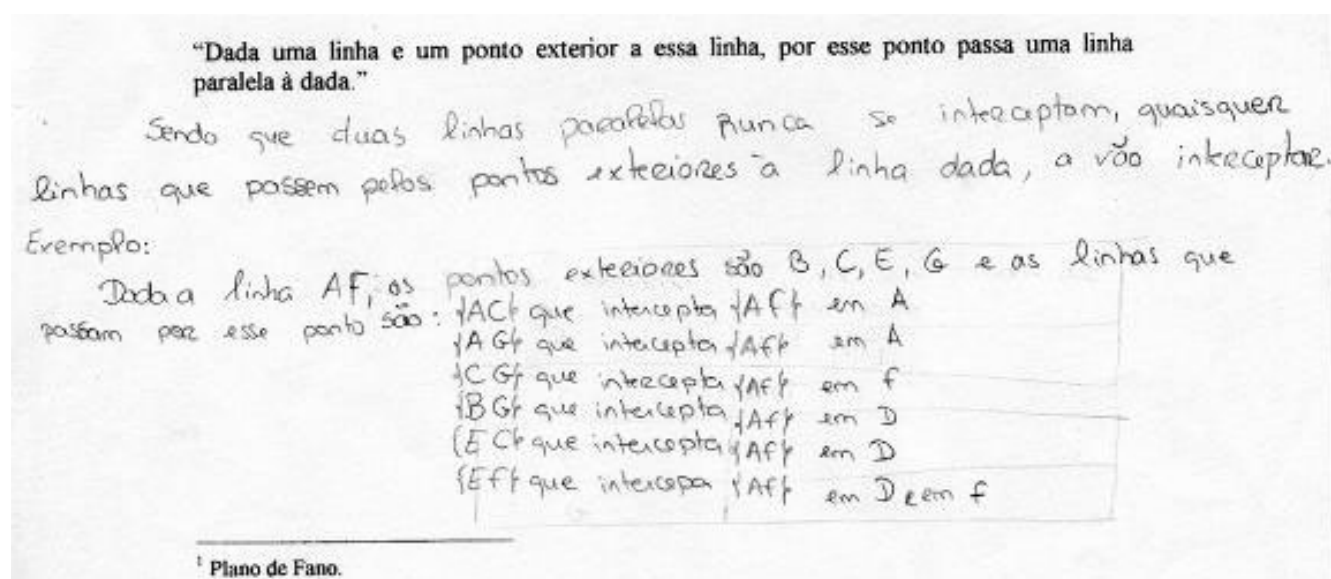 “Dada uma linha e um ponto exterior a essa linha, por esse ponto passa uma linha
paralela à dada.”
Sendo que duas linhas paralelas nunca se interceptam, quaisquer
linhas que passem pelos pontos exteriores à linha dada, a vão interceptar.
Exemplo:
Dada a linha AF, os pontos exteriores são B, C, E, G e as linhas que
passam por esse ponto são: {AC} que intercepta {AF} em A
{AG} que intercepta {AF} em A
{CG} que intercepta {AF} em F
{BG} que intercepta {AF} em D
{EC} que intercepta {AF} em D
{EF} que intercepa {AF} em D e em F
¹ Plano de Fano.